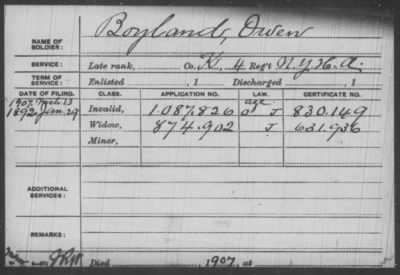 Boyland, Owen
NAME OF SOLDIER:
SERVICE: Late rank, Co. K, 4 Reg't N.Y.H.A.
TERM OF SERVICE: Enlisted , 1 Discharged , 1
DATE OF FILING. CLASS. APPLICATION NO. LAW. CERTIFICATE NO.
1907 Mch 13 age
1892 Jan. 29 Invalid, 1.087.826 J 830.149
Widow, 874.902 J 631.936
Minor,
ADDITIONAL SERVICES:
REMARKS:
Died , 1907, at